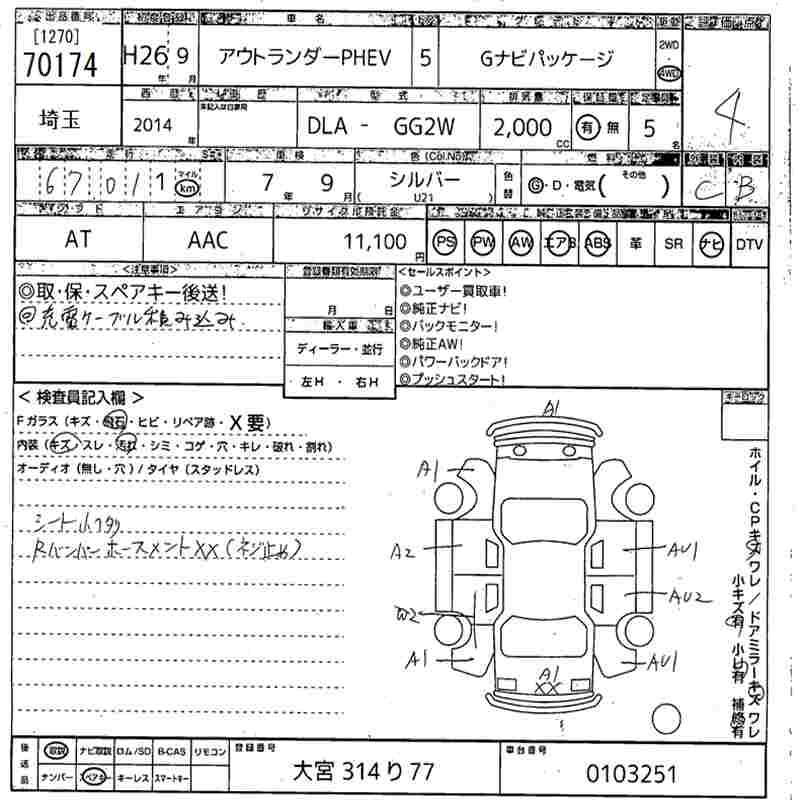 出品番号 初度登録 車名
[1270]
70174 H26年 9月 アウトランダーPHEV 5 Gナビパッケージ 2WD 4WD
西暦 車歴 型式 排気量
埼玉 2014年 DLA - GG2W 2,000CC 有 無 5 4
走行 車検 色(Col.No) 燃料
67011 マイル km 7年 9月 シルバー ( U21 ) 色替 G・D・電気( その他 ) C B
エアコン リサイクル預託金
AT AAC 11,100円 PS PW AW エアB ABS 革 SR ナビ DTV
<注意事項> 登録書類有効期限 <セールスポイント>
◎取・保・スペアキー後送!
充電ケーブル積み込み
月 日
輸入車
ディーラー・並行
左H ・ 右H
◎ユーザー買取車!
◎純正ナビ!
◎バックモニター!
◎純正AW!
◎パワーバックドア!
◎プッシュスタート!
< 検査員記入欄 >
Fガラス (キズ・飛石・ヒビ・リペア跡・X要)
内装 (キズ・スレ・汚れ・シミ・コゲ・穴・キレ・破れ・割れ)
オーディオ (無し・穴) / タイヤ (スタッドレス)
シート小ヘタリ
RバンパーホースメントXX(ネジ止め)
A1
A1
A2 AU1
W2 AU2
A1 A1 AU1
XX
キーロック
ホイル・CPキズワレ/ドアミラーキズワレ
小キズ有/小凹有 補修有
後送品 取説 ナビ取説 ロム/SD B-CAS リモコン 登録番号 車台番号
ナンバー スペアキー キーレス スマートキー 大宮 314 り 77 0103251